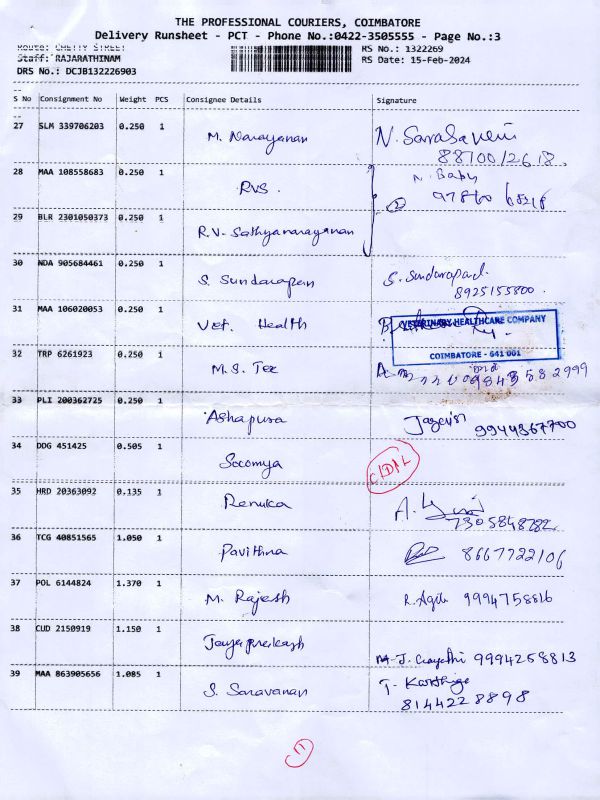 THE PROFESSIONAL COURIERS, COIMBATORE
Delivery Runsheet - PCT - Phone No.:0422-3505555 - Page No.:3
Route: CHETTY STREET
RS No.: 1322269
Staff: RAJARATHINAM
RS Date: 15-Feb-2024
DRS No.: DCJB132226903
S No Consignment No Weight PCS Consignee Details Signature
27 SLM 339706203 0.250 1 M. Narayanan
28 MAA 108558683 0.250 1 RVS. N. Baby
29 BLR 2301050373 0.250 1 R.V. Sathyanarayanan
30 NDA 905684461 0.250 1 S. Sundarapan
8925155800.
31 MAA 106020053 0.250 1 Vet. Health
VETERINARY HEALTHCARE COMPANY
COIMBATORE - 641 001
32 TRP 6261923 0.250 1 M.S. Tex
33 PLI 200362725 0.250 1 Ashapura 9944367700
34 DDG 451425 0.505 1 Sowmya
35 HRD 20363092 0.135 1 Renuka
36 TCG 40851565 1.050 1 Pavithna 8667722106
37 POL 6144824 1.370 1 M. Rajesh 9994758816
38 CUD 2150919 1.150 1 Jayaprakash 9994258813
39 MAA 863905656 1.085 1 S. Saravanan T. Karthiga
8144228898